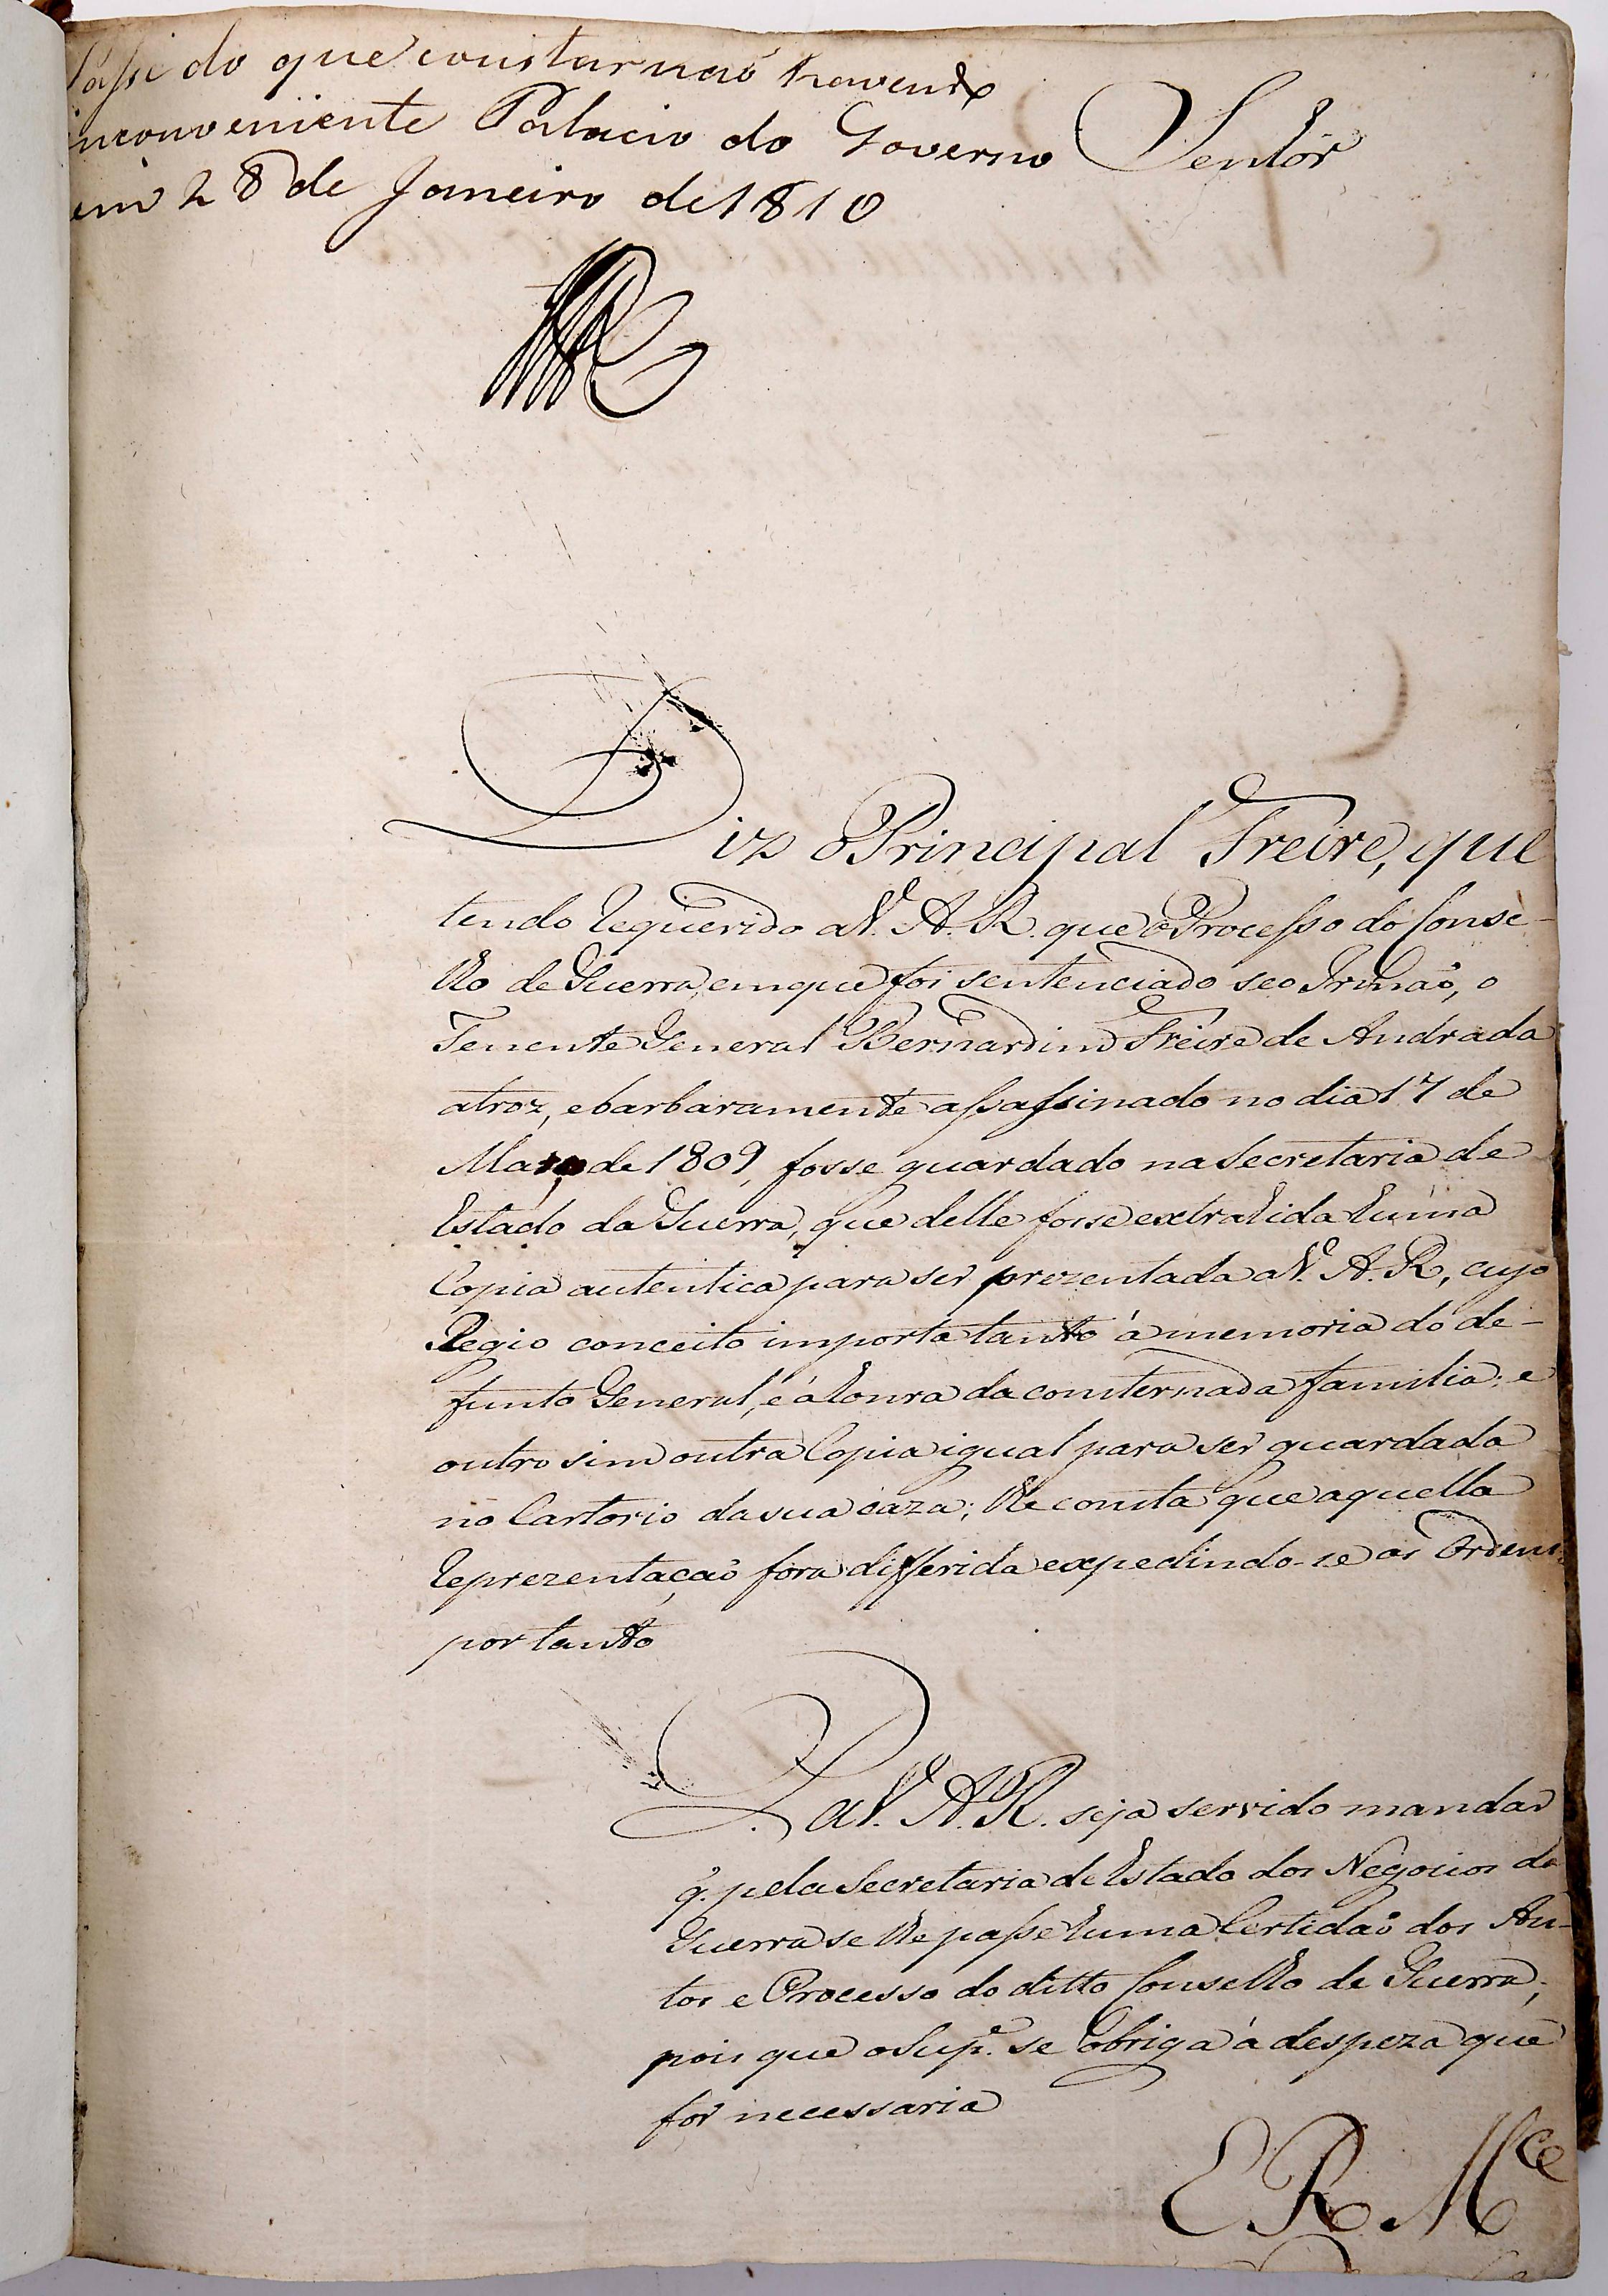 Passe do que constar naõ havendo
inconveniente Palacio do Governo
em 28 de Janeiro de 1810
Senhor
Diz o Principal Freire, que
tendo requerido a V. A. R. que o Processo do Conse-
lho de Guerra, em que foi sentenciado seo Irmaõ, o
Tenente General Bernardino Freire de Andrada
atroz, e barbaramente assassinado no dia 17 de
Março de 1809, fosse guardado na Secretaria de
Estado da Guerra, que delle fosse extrahida huma
Copia autentica para ser prezentada a V. A. R., cujo
Regio conceito importa tanto á memoria do de-
funto General, e á honra da consternada familia; e
outro sim outra Copia igual para ser guardada
no Cartorio da sua caza; lhe consta que aquella
reprezentaçaõ fora differida expedindo-se as Ordens
por tanto
P. a V. A. R. seja servido mandar
q. pela Secretaria de Estado dos Negocios da
Guerra se lhe passe huma Certidaõ dos Au-
tos e Processo do ditto Conselho de Guerra,
pois que o Sup.e se obriga á despeza que
for necessaria
E. R. M.ce